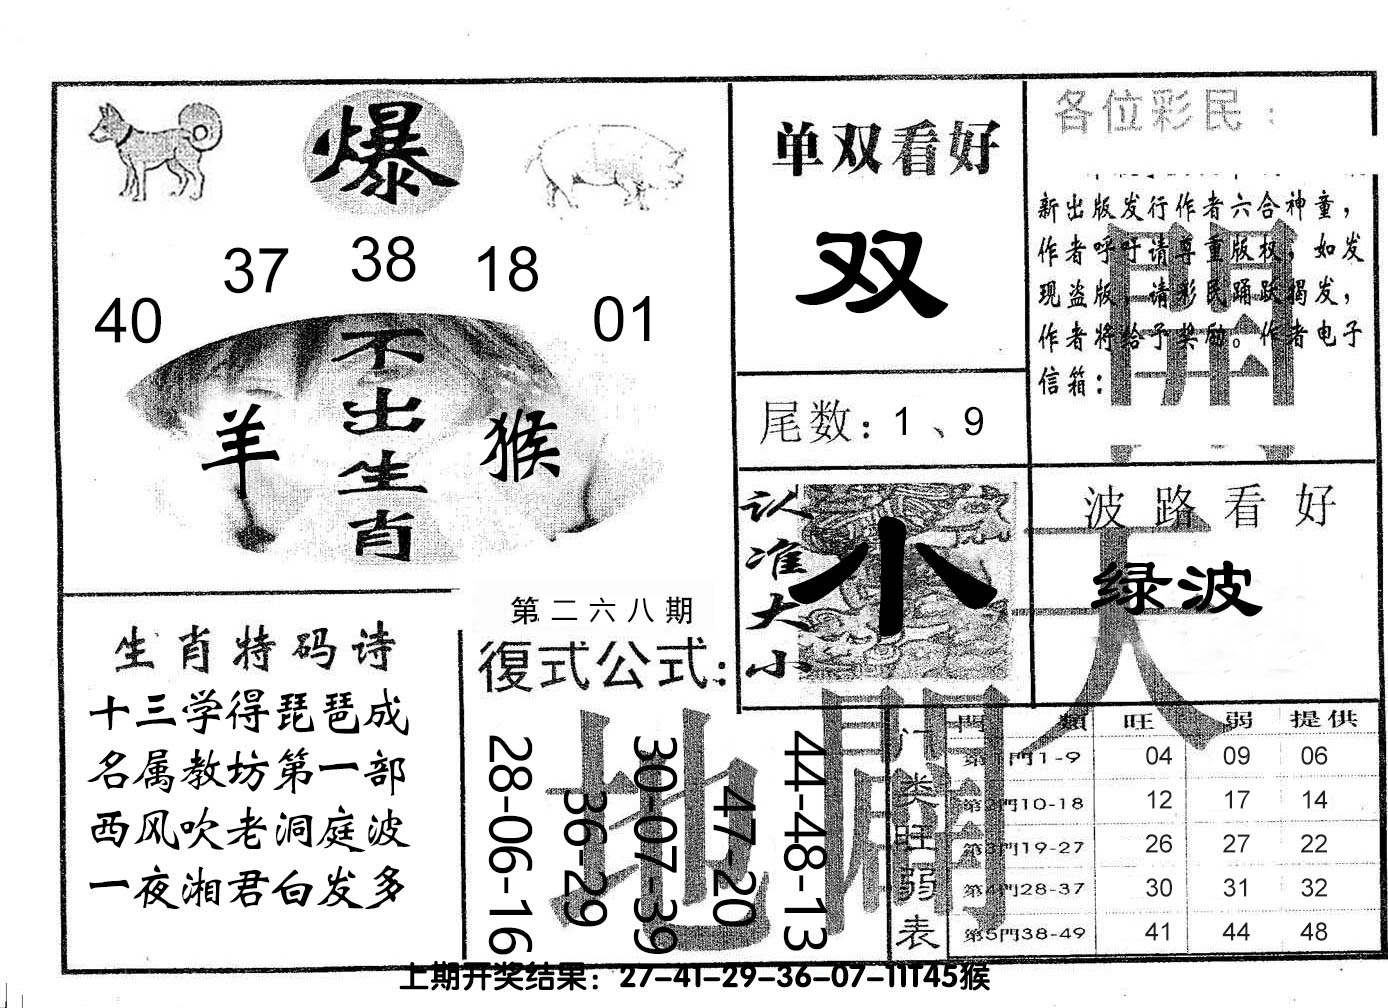 爆
37 38 18
40 01
不出生肖
羊 猴
单双看好
双
尾数：1、9
认准大小
小
各位彩民：
新出版发行作者六合神童，
作者呼吁请尊重版权，如发
现盗版，请彩民踊跃揭发，
作者将给予奖励。作者电子
信箱：
開
波路看好
绿波
天
生肖特码诗
十三学得琵琶成
名属教坊第一部
西风吹老洞庭波
一夜湘君白发多
第二六八期
復式公式：
28-06-16
36-29
30-07-39
47-20
44-48-13
地
門类旺弱表
門類 旺 弱 提供
第1門1-9 04 09 06
第2門10-18 12 17 14
第3門19-27 26 27 22
第4門28-37 30 31 32
第5門38-49 41 44 48
上期开奖结果：27-41-29-36-07-11T45猴